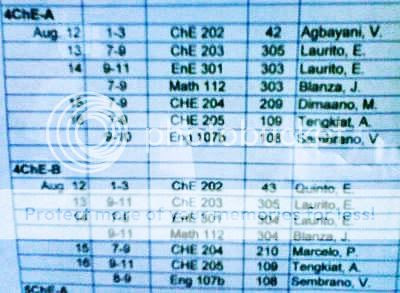 4ChE-A
Aug. 12 1-3 ChE 202 42 Agbayani, V.
13 7-9 ChE 203 305 Laurito, E.
14 9-11 EnE 301 303 Laurito, E.
7-9 Math 112 303 Blanza, J.
15 7-9 ChE 204 209 Dimaano, M.
16 7-9 ChE 205 109 Tengkiat, A.
Eng 107b 108 Sembrano, V.
photobucket
4ChE-B
Aug. 12 1-3 ChE 202 43 Quinto, E.
13 9-11 ChE 203 305 Laurito, E.
Protect more of your memories for less!
14 EnE 301 304 Laurito, E.
9-11 Math 112 304 Blanza, J.
15 7-9 ChE 204 210 Marcelo, P.
16 9-11 ChE 205 109 Tengkiat, A.
8-9 Eng 107b 108 Sembrano, V.
5ChE-A